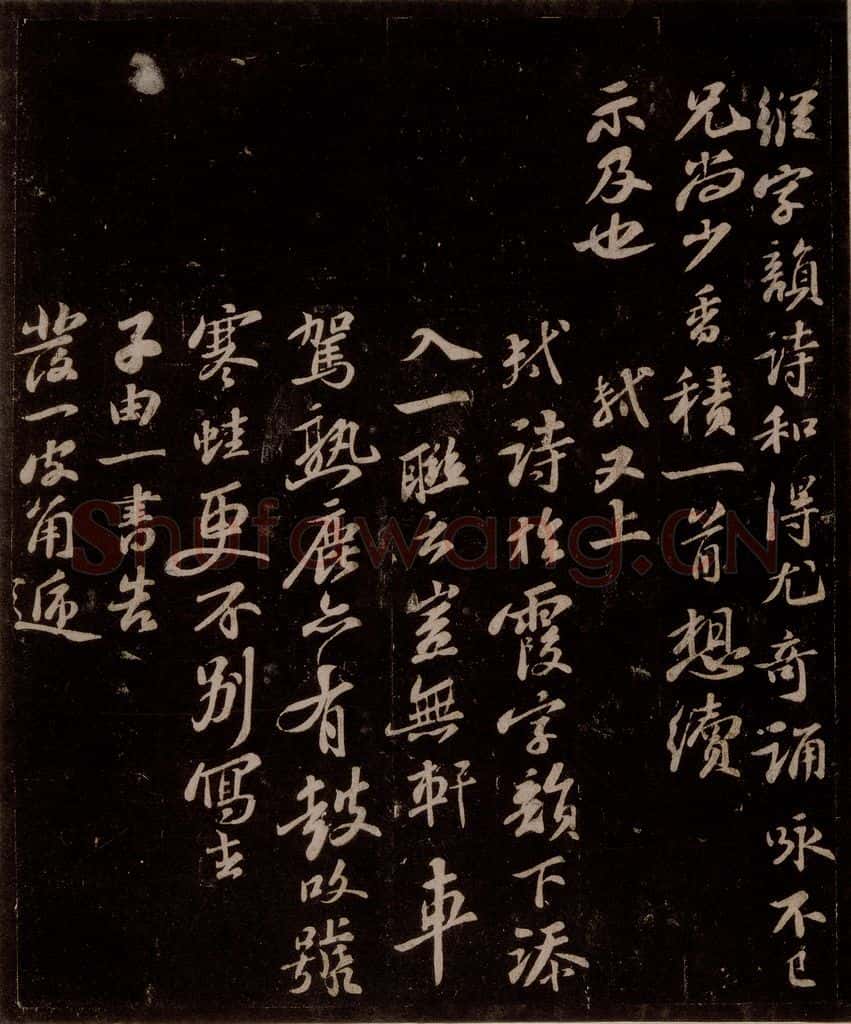 縆字韻詩和得尤奇誦咏不已
兄尚少香積一首想續
示及也
軾又上
軾詩於霞字韻下添
入一聯云豈無軒車
駕熟鹿亦有鼓吹號
寒蛙更不別寫去
子由一書告
發一皮角遞
Shufawang.CN